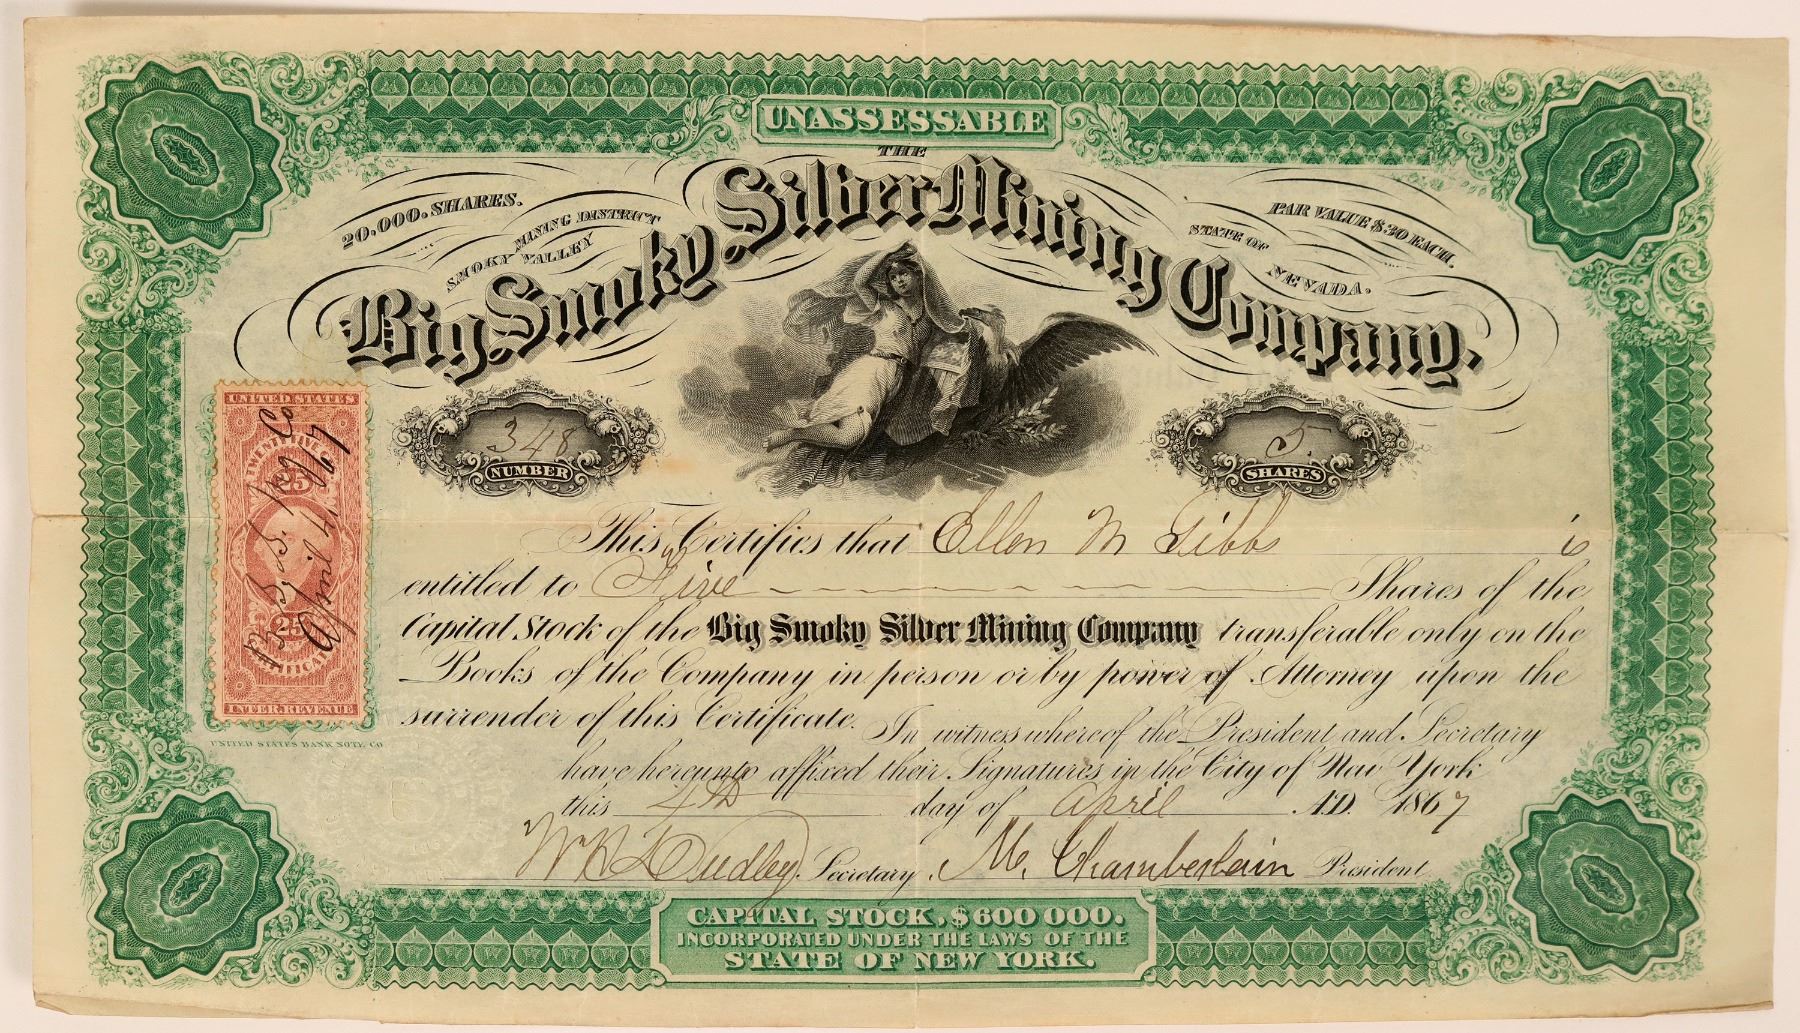 UNASSESSABLE
THE
20,000. SHARES.
SMOKY VALLEY MINING DISTRICT
STATE OF NEVADA.
PAR VALUE $30 EACH.
Big Smoky Silver Mining Company.
348
NUMBER
5
SHARES
UNITED STATES
TWENTY FIVE
25
25
INTER. REVENUE
April 4 /67
UNITED STATES BANK NOTE CO
This Certifies that Ellen M Gibbs is
entitled to Five Shares of the
Capital Stock of the Big Smoky Silver Mining Company transferable only on the
Books of the Company in person or by power of Attorney upon the
surrender of this Certificate. In witness whereof the President and Secretary
have hereunto affixed their Signatures in the City of New York
this 4th day of April A.D. 1867
W H Dudley Secretary. M. Chamberlain President
CAPITAL STOCK, $600 000.
INCORPORATED UNDER THE LAWS OF THE
STATE OF NEW YORK.